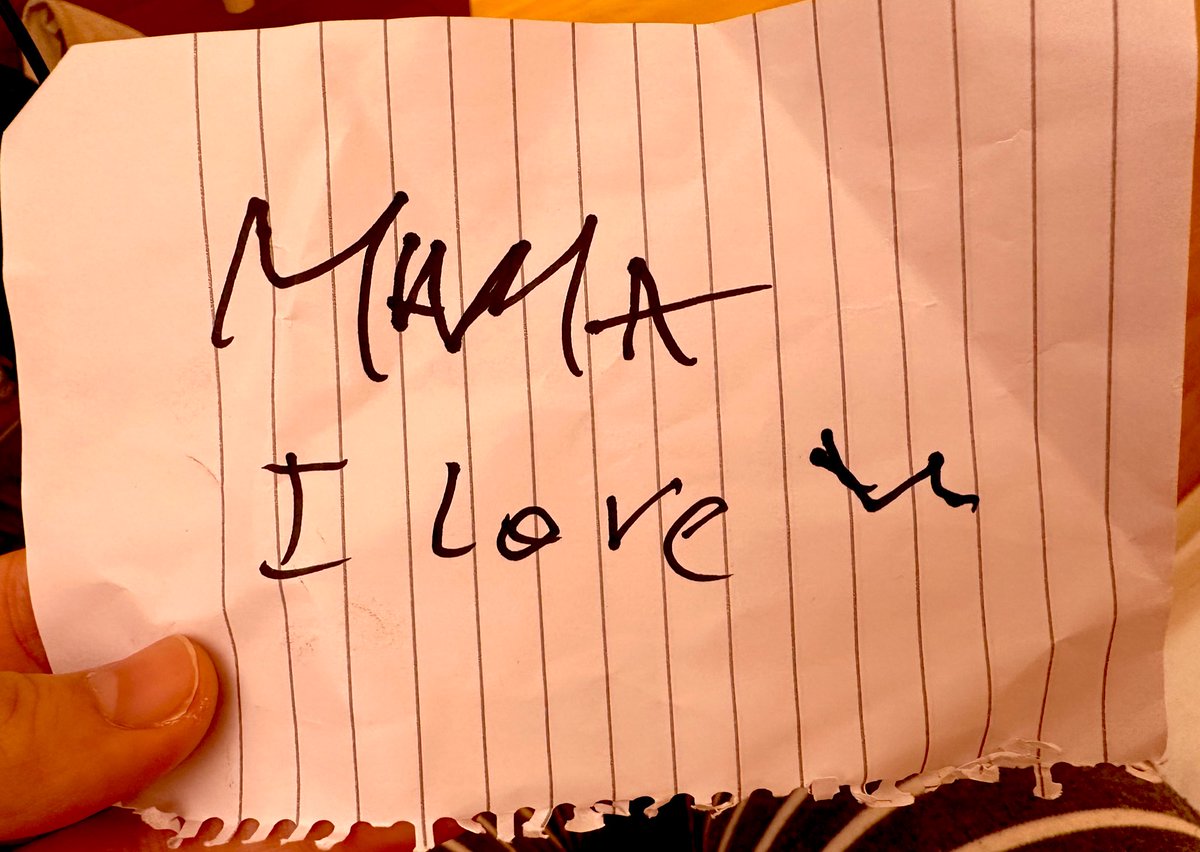 MAMA
I love u